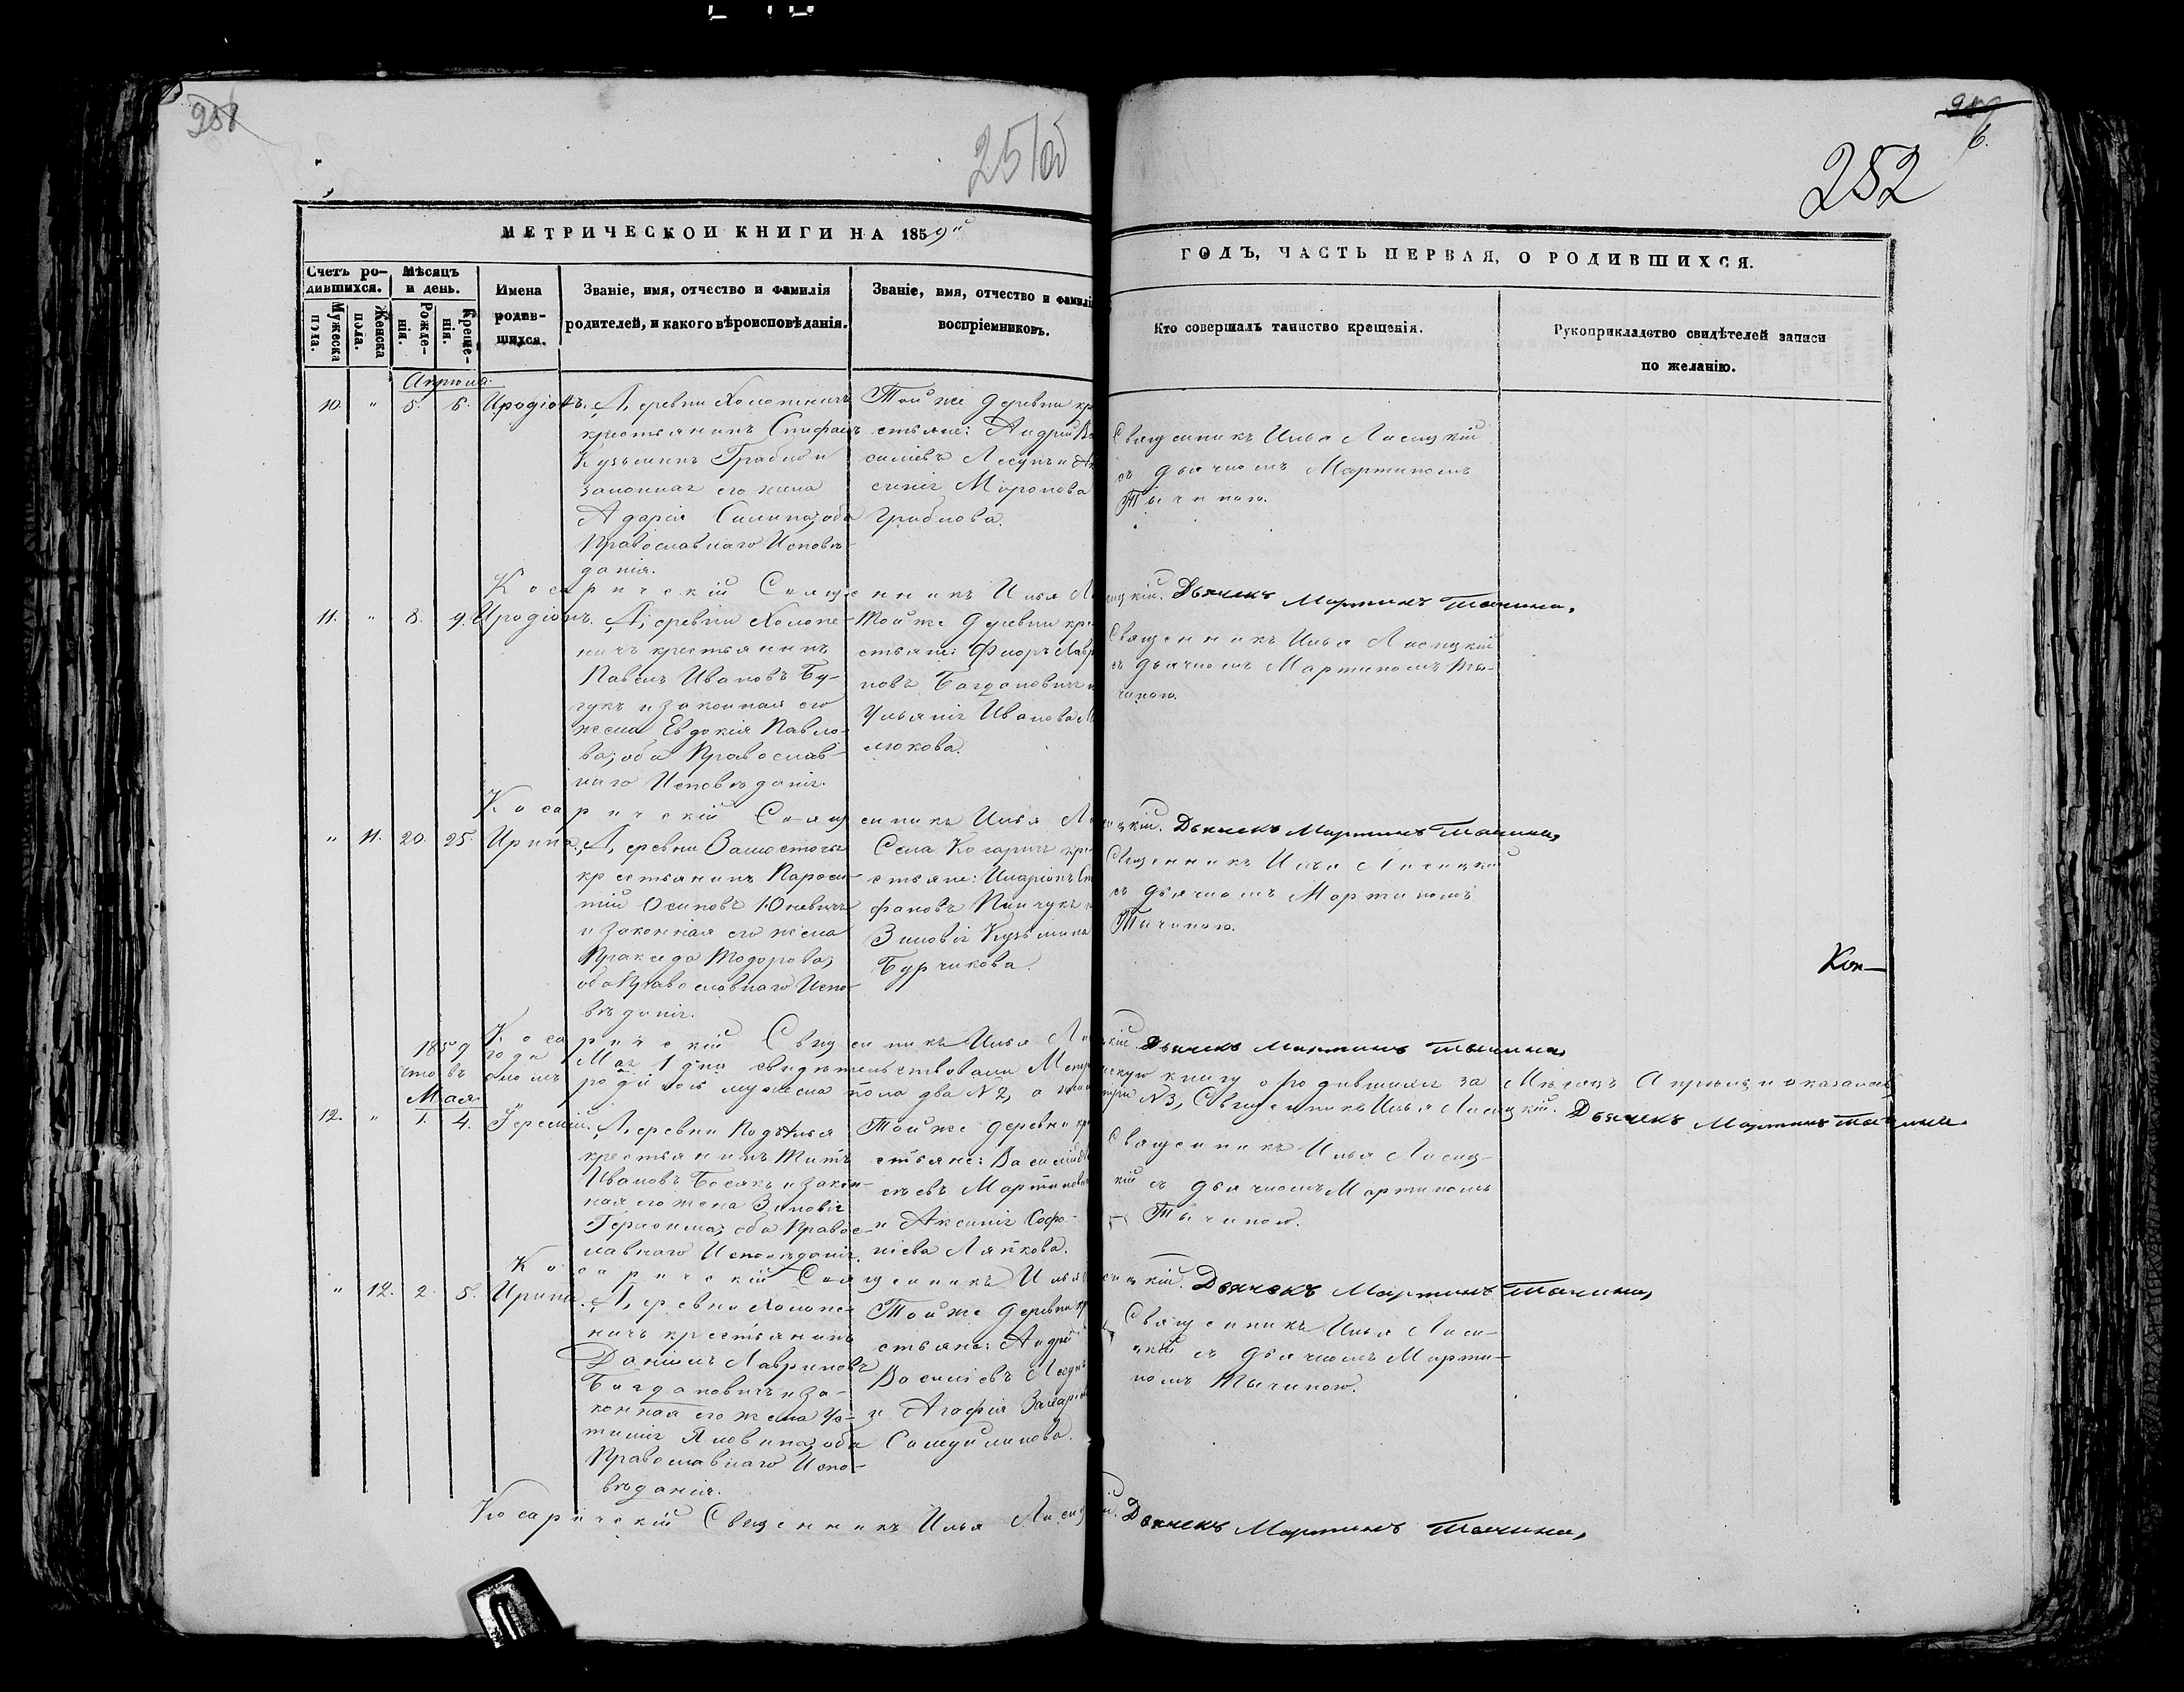 251
251об
252
6.
МЕТРИЧЕСКОЙ КНИГИ НА 1859й
ГОДЪ, ЧАСТЬ ПЕРВАЯ, О РОДИВШИХСЯ.
Счетъ ро-
дившихся.
Мужеска
пола.
Женска
пола.
Мѣсяцъ
и день.
Рожде-
нія.
Креще-
нія.
Имена
родив-
шихся.
Званіе, имя, отчество и фамилія
родителей, и какого вѣроисповѣданія.
Званіе, имя, отчество и фамилі
воспріемниковъ.
Кто совершалъ таинство крещенія.
Рукоприкладство свидѣтелей записи
по желанію.
Априля.
10. " 5. 6. Иродіонъ.
Деревни Холопеничъ
крестьянинъ Стефанъ
Кузьминъ и
законная его жена
Адарія оба
Православнаго Исповѣ-
данія.
Той же деревни кр
стьяне: Андрей Ва
силіевъ Лесунъ и
Миронова
Грибкова.
Священникъ Илья Лисицкій
съ дьячкомъ Мартиномъ
Тычиною.
Косаричскій Священникъ Илья Лисицкій. Дьячекъ Мартинъ Тычина,
11. " 8. 9. Иродіонъ.
Деревни Холопе-
ничъ крестьянинъ
Павелъ Ивановъ Бу-
гукъ и законная его
жена Евдокія Павло-
ва; оба Православ-
наго Исповѣданія.
Той же деревни кре
стьяне: Флоръ Лавр
новъ Богдановичъ и
Ульянія Иванова
люкова.
Священникъ Илья Лисицкій
съ дьячкомъ Мартиномъ Ты-
чиною.
Косаричскій Священникъ Илья Лисицкій. Дьячекъ Мартинъ Тычина,
" 11. 20. 25. Ирина.
Деревни Замосточья
крестьянинъ
Осиповъ Юневичъ
и законная его жена
Праксида Тодорова;
оба Православнаго Испо-
вѣданія.
Села Косаричъ кре
стьяне: Иларіонъ Сте
фановъ Пинчукъ и
Зиновія Кузьмина
Бурчикова.
Священникъ Илья Лисицкій
съ дьячкомъ Мартиномъ
Тычиною.
Кон-
Косаричскій Священникъ Илья Лисицкій. Дьячекъ Мартинъ Тычина,
1859 года Мая 1 дня свидѣтельствовали Метрическую книгу о родившихся за Мѣсяцъ Априль, и оказалось
что въ ономъ родилось мужеска пола два № 2, а женска три № 3, Священникъ Илья Лисицкій. Дьячекъ Мартинъ Тычина.
Мая
12. " 1. 4. Іеремій.
Деревни
крестьянинъ Титъ
Ивановъ Босякъ и закон-
ная его жена Зиновія
Герасима; оба Правос-
лавнаго Исповѣданія.
Той же деревни кр
стьяне: Василій
Мартиновичъ
и Аксинія Софо-
ніева Ляпкова.
Священникъ Илья Лисиц-
кій съ дьячкомъ Мартиномъ
Тычиною.
Косаричскій Священникъ Илья Лисицкій. Дьячекъ Мартинъ Тычина,
" 12. 2. 5. Ирина.
Деревни Холопе-
ничъ крестьянинъ
Даніилъ Лавриновъ
Богдановичъ и за-
конная его жена Ус-
тинія Яковлева; оба
Православнаго Испо-
вѣданія.
Той же деревни кр
стьяне: Андрей
Василіевъ Лесунъ
и Агафія Захаріева
Самуйликова.
Священникъ Илья Лиси-
цкій съ дьячкомъ Марти-
номъ Тычиною.
Косаричскій Священникъ Илья Лисицкій. Дьячекъ Мартинъ Тычина,